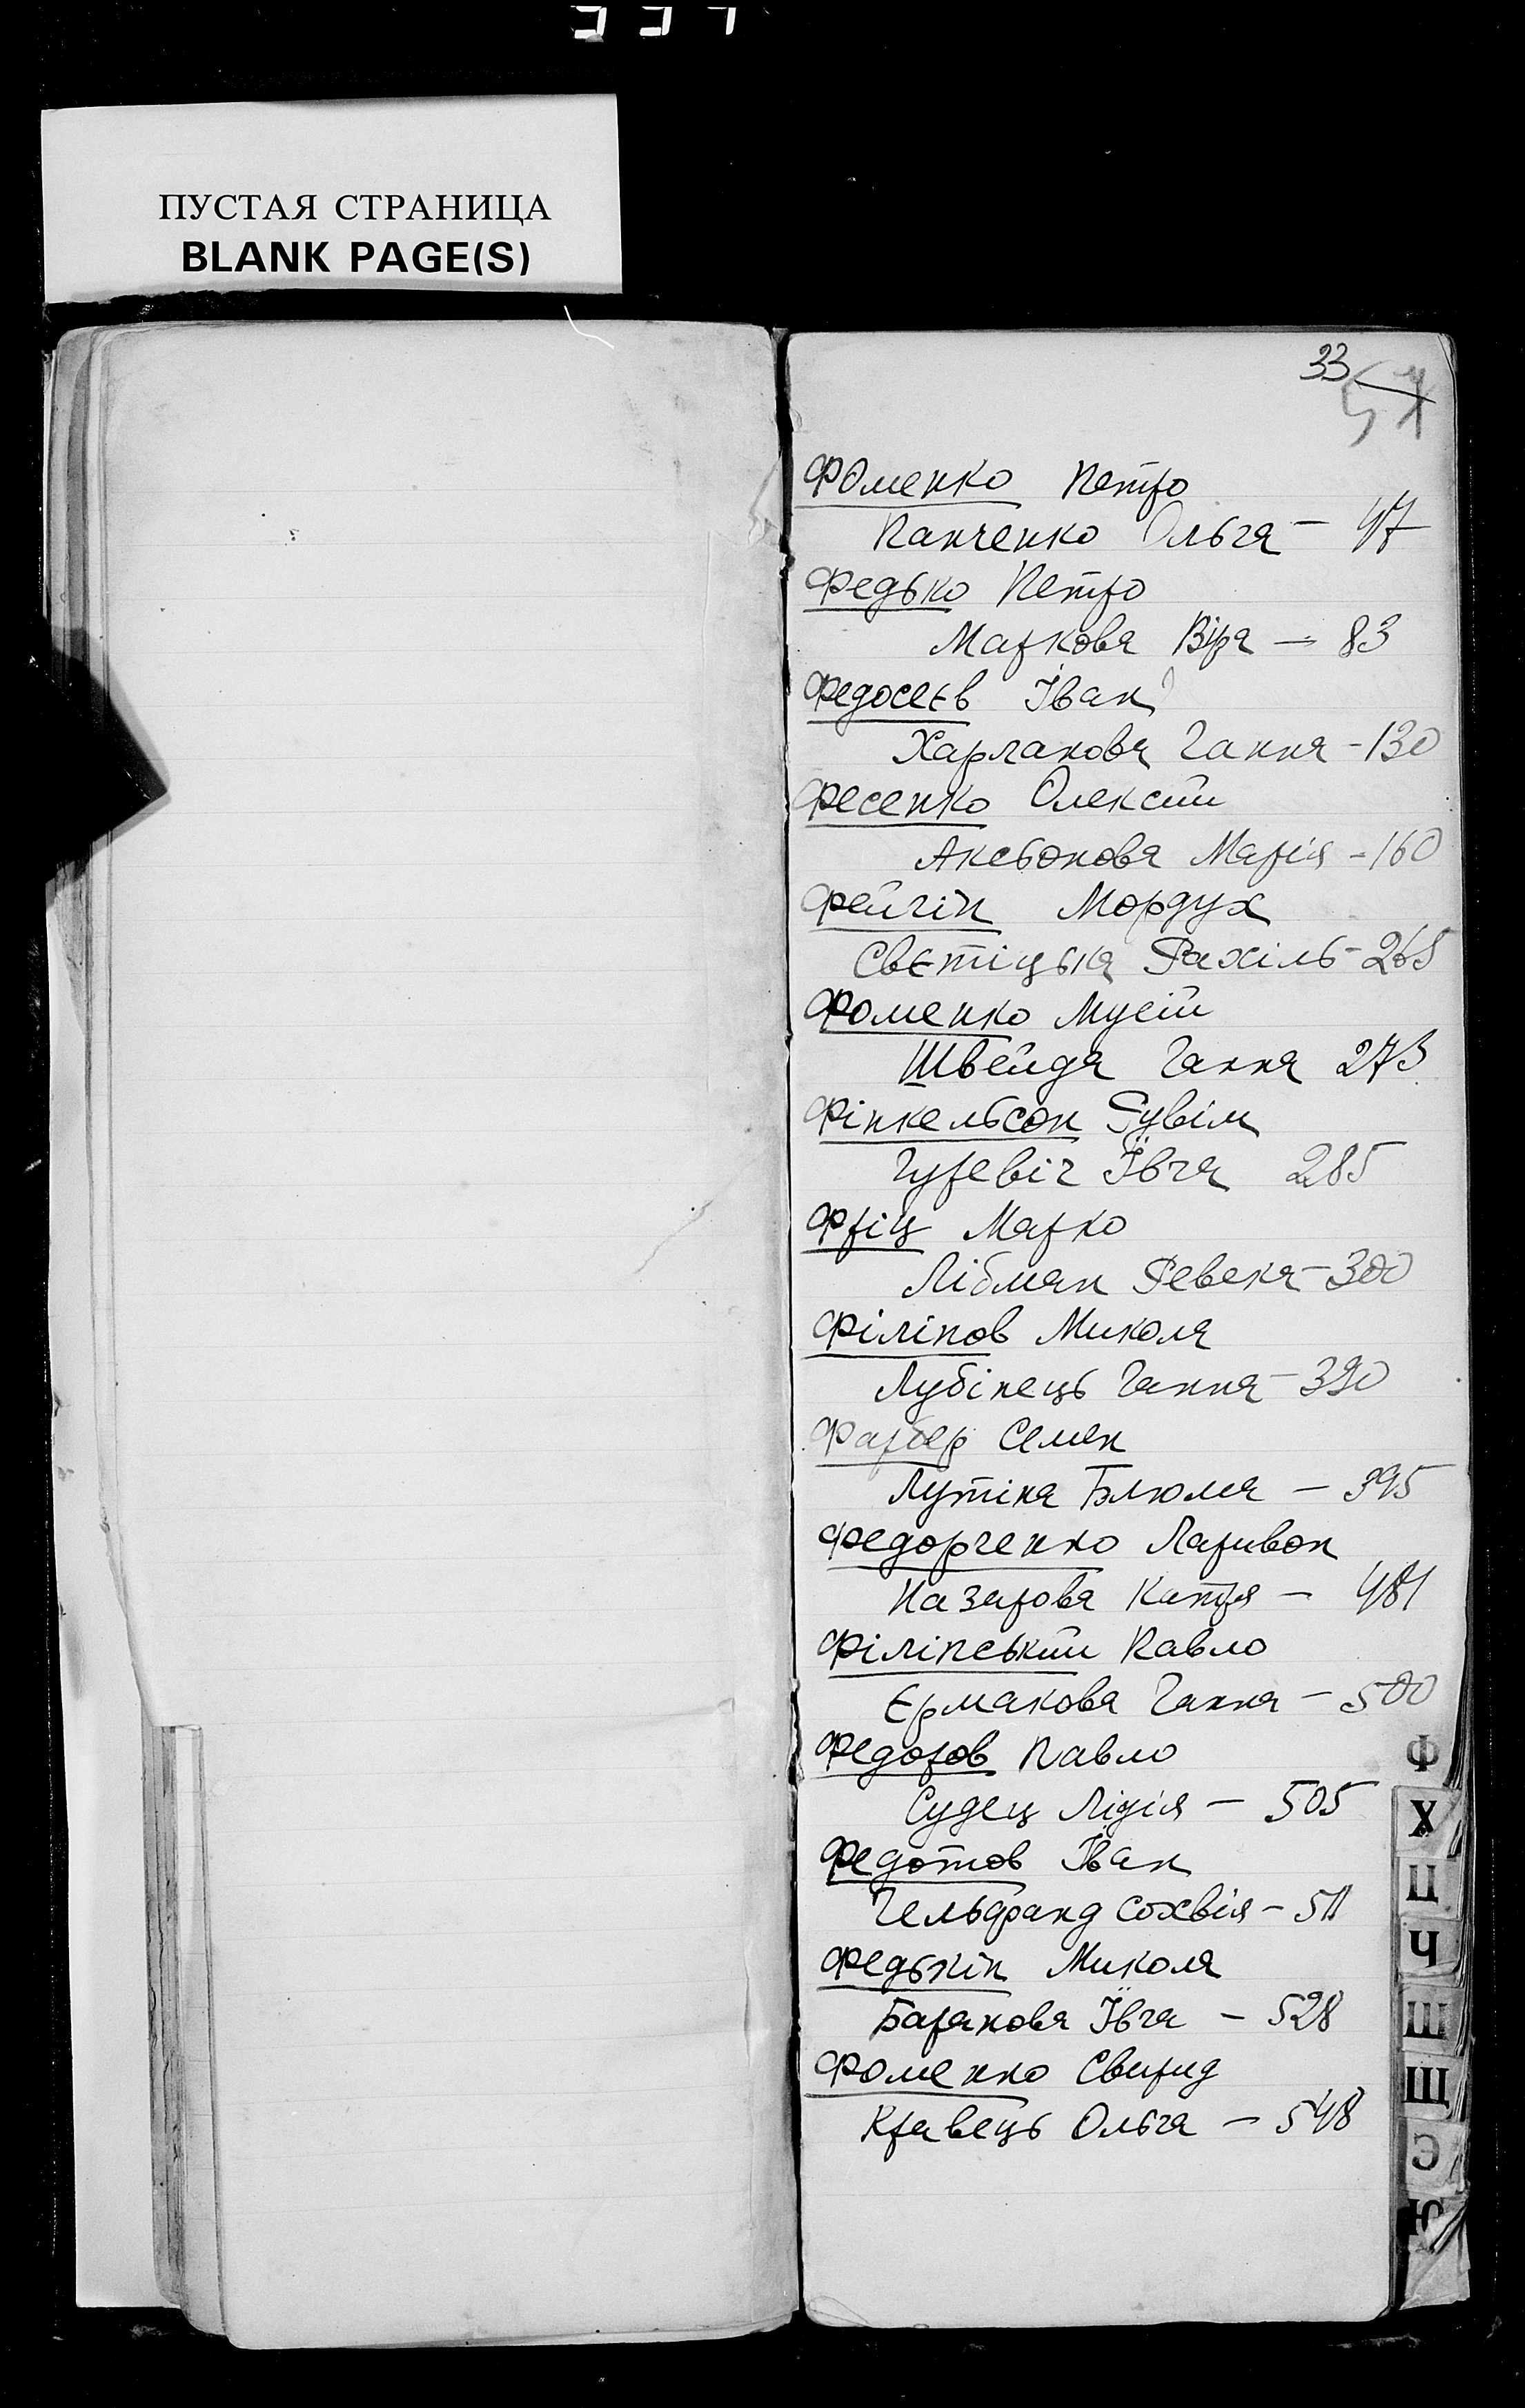 ПУСТАЯ СТРАНИЦА
BLANK PAGE(S)
33
Фоменко Петро
Панченко Ольга - 47
Федько Петро
Маркова Віра - 83
Федосеєв Іван
Харланова Ганна - 130
Фесенко Олексій
Аксьонова Марія - 160
Фейгін Мордух
Свєтіцька Рахіль - 265
Фоменко Мусій
Швейда Ганна 273
Фінкельсон Рувім
Гуревіч Ївга 285
Фріц Марко
Лібман Ревека - 300
Філіпов Микола
Лубінець Ганна - 390
Фарбер Семен
Лутіна Блюма - 395
Федорченко Ларивон
Назарова Катря - 481
Філіпський Павло
Єрмакова Ганна - 500
Федоров Павло
Судец Лідія - 505
Федотов Іван
Гельфанд Сохвія - 511
Федькін Микола
Баранова Ївга - 528
Фоменко Свирид
Кравець Ольга - 548
Ф
Х
Ц
Ч
Ш
Щ
Э
Ю